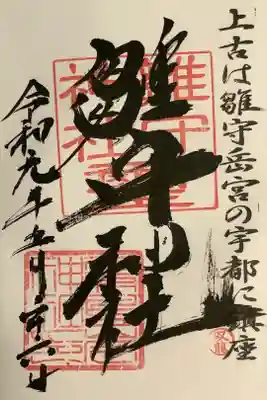 上古は雛守岳宮の宇都に鎮座
雛守社
令和元年五月廿六日